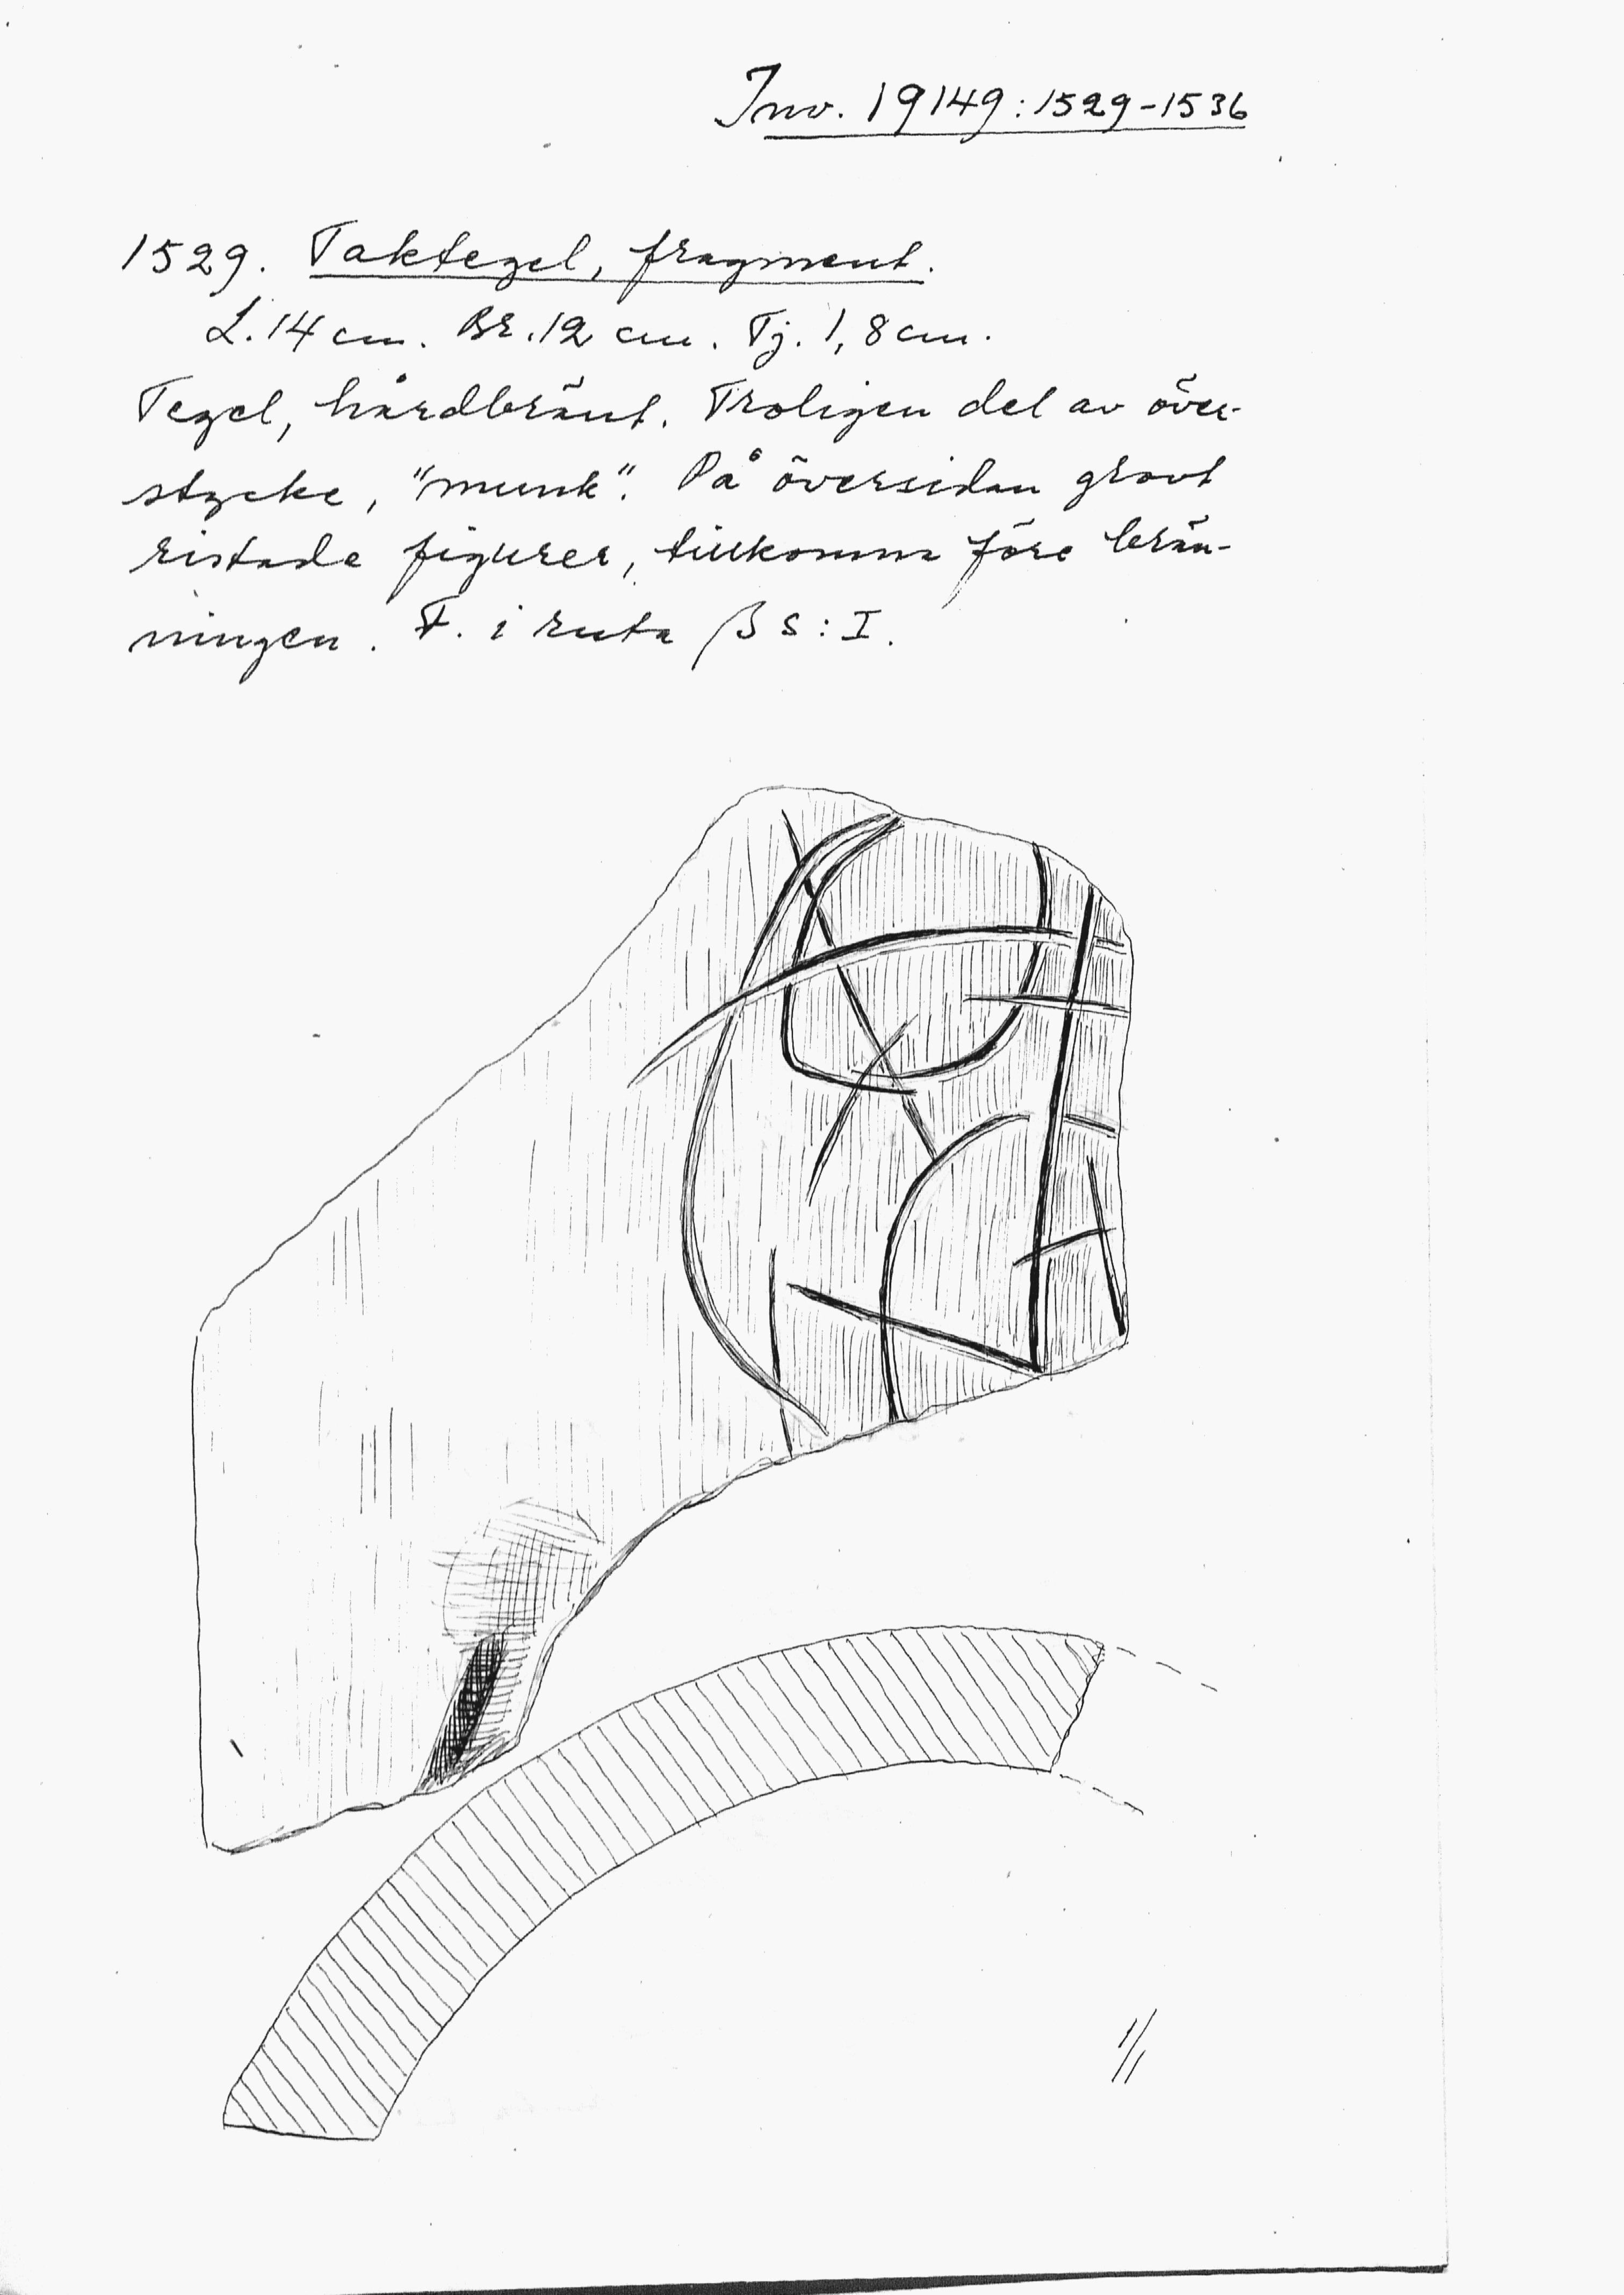 Inv. 19149:1529-1536
1529. Taktegel, fragment.
L. 14 cm. Br. 12 cm. Tj. 1,8 cm.
Tegel, hårdbränt. Troligen del av över-
stycke, "munk". På översidan grovt
ristade figurer, tillkomna före brän-
ningen. F. i ruta β S:I.
1/1